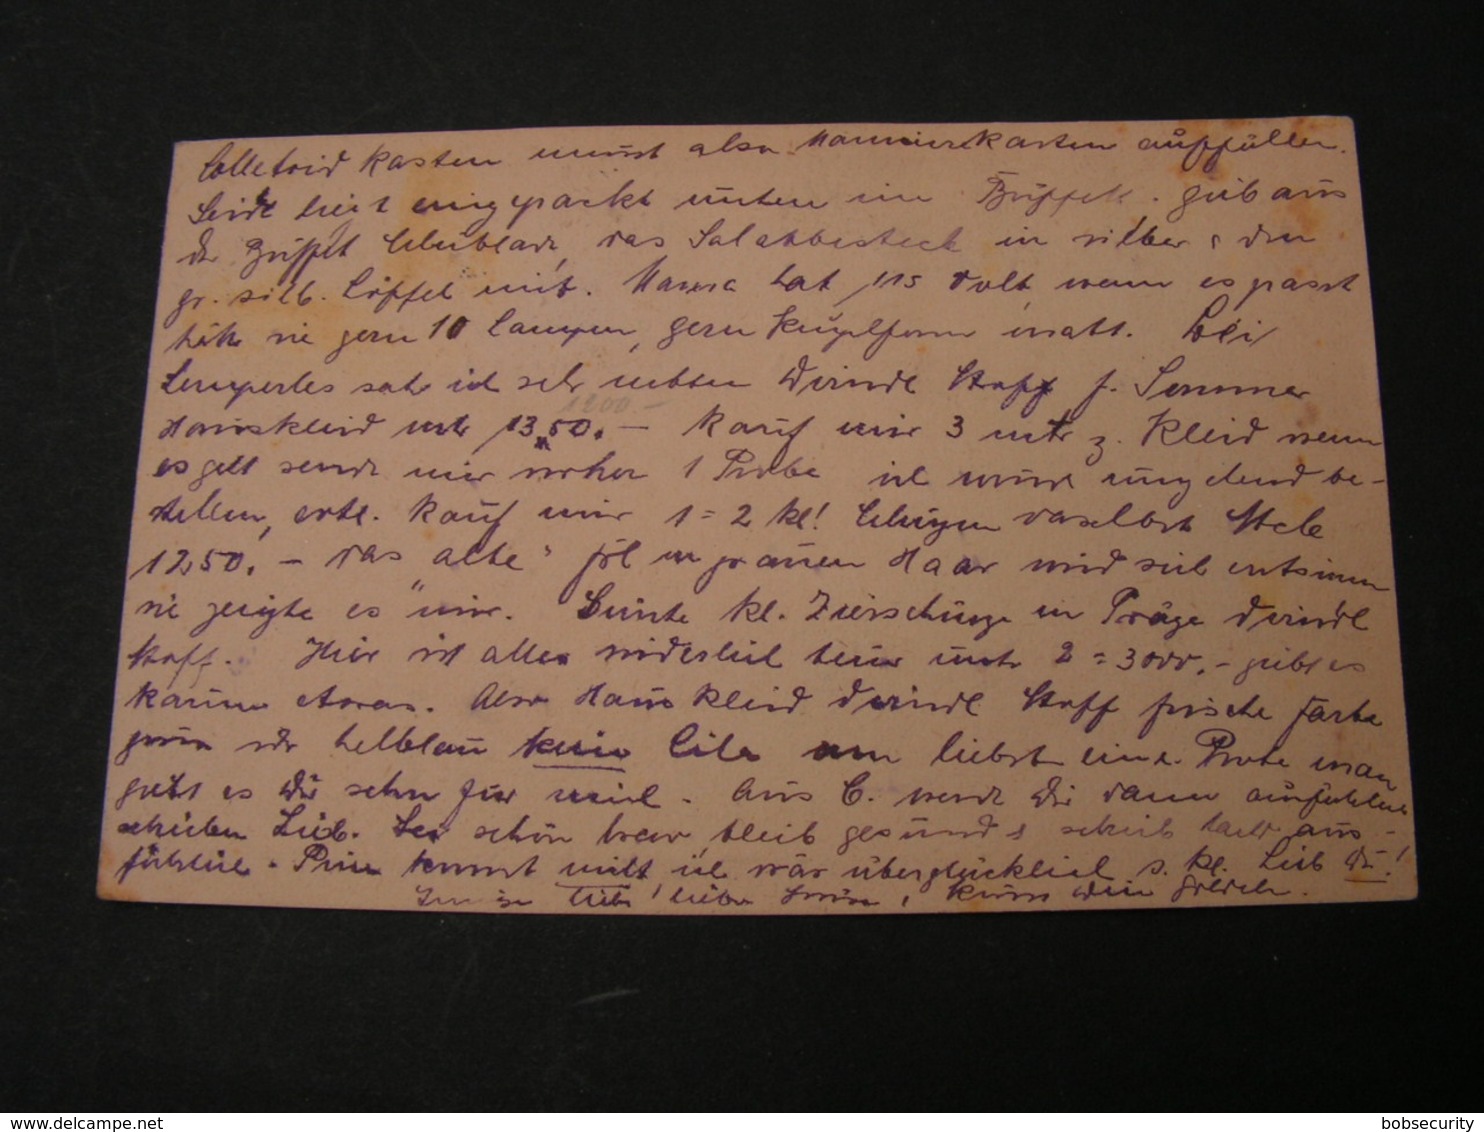 Kasten also auffüllen.
liegt eingepackt unten im Büffett. gib aus
der Büffet das Salatbesteck in silber & den
gr. silb. Löffel mit. Mama hat 115 Volt, wenn es passt
hätte sie gern 10 Lampen, gern Kugelform matt. Bei
sah ich sehr netten Dirndl Stoff f. Sommer
Hauskleid mtr 13.50.- Kauf mir 3 mtr z. Kleid wenn
es geht sende mir vorher 1 Probe ich würde umgehend be-
stellen, evtl. Kauf mir 1=2 kl! daselbst
1250.- das alte Frl m grauen Haar wird sich entsinnen
sie zeigte es mir. Bunte kl. Zierschürze in Dirndl
Stoff. Hier ist alles widerlich teuer mtr 2=3000.- gibt es
kaum etwas. Also Hauskleid Dirndl Stoff frische Farbe
grün oder hellblau kein lila am liebst eine Probe man
gibt es Dir schon für mich. Aus C. werde Dir dann ausführlich
schreiben Lieb. Sei schön brav, bleib gesund & schreib aus-
führlich. komst mit ich wär überglücklich s. kl. Lieb Du!
lieber
1200.-
delcampe.net
bobsecurity